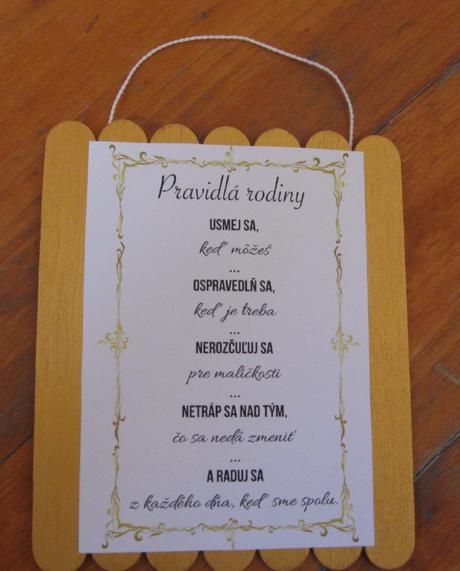 Pravidlá rodiny
USMEJ SA,
keď môžeš
...
OSPRAVEDLŇ SA,
keď je treba
...
NEROZČUĽUJ SA
pre maličkosti
...
NETRÁP SA NAD TÝM,
čo sa nedá zmeniť
...
A RADUJ SA
z každého dňa, keď sme spolu.